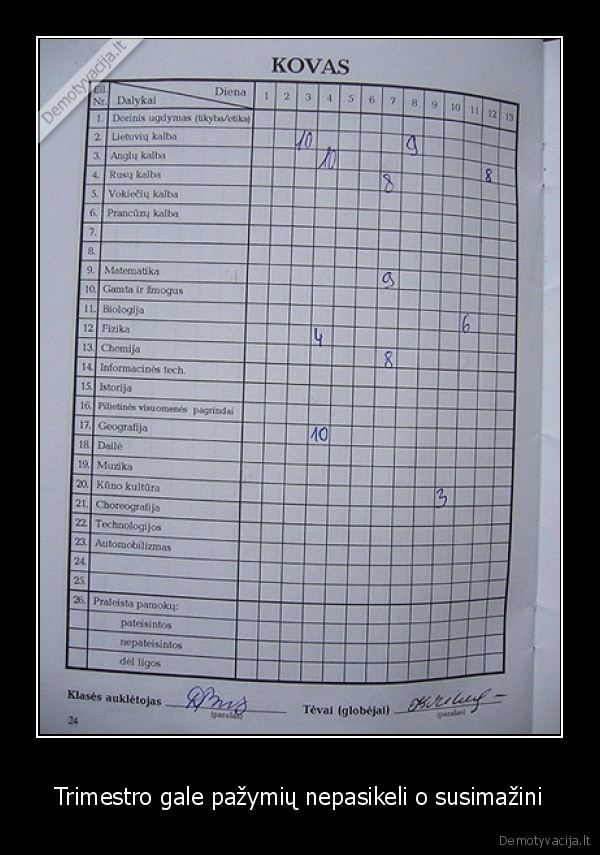 Demotyvacija.lt
KOVAS
Eil. Nr. Dalykai Diena 1 2 3 4 5 6 7 8 9 10 11 12 13
1. Dorinis ugdymas (tikyba/etika)
2. Lietuvių kalba 10 9
3. Anglų kalba 10
4. Rusų kalba 8 8
5. Vokiečių kalba
6. Prancūzų kalba
7.
8.
9. Matematika 9
10. Gamta ir žmogus
11. Biologija 6
12. Fizika 4
13. Chemija 8
14. Informacinės tech.
15. Istorija
16. Pilietinės visuomenės pagrindai
17. Geografija 10
18. Dailė
19. Muzika
20. Kūno kultūra 3
21. Choreografija
22. Technologijos
23. Automobilizmas
24.
25.
26. Praleista pamokų:
pateisintos
nepateisintos
dėl ligos
Klasės auklėtojas (parašas) Tėvai (globėjai) (parašas)
24
Trimestro gale pažymių nepasikeli o susimažini
Demotyvacija.lt